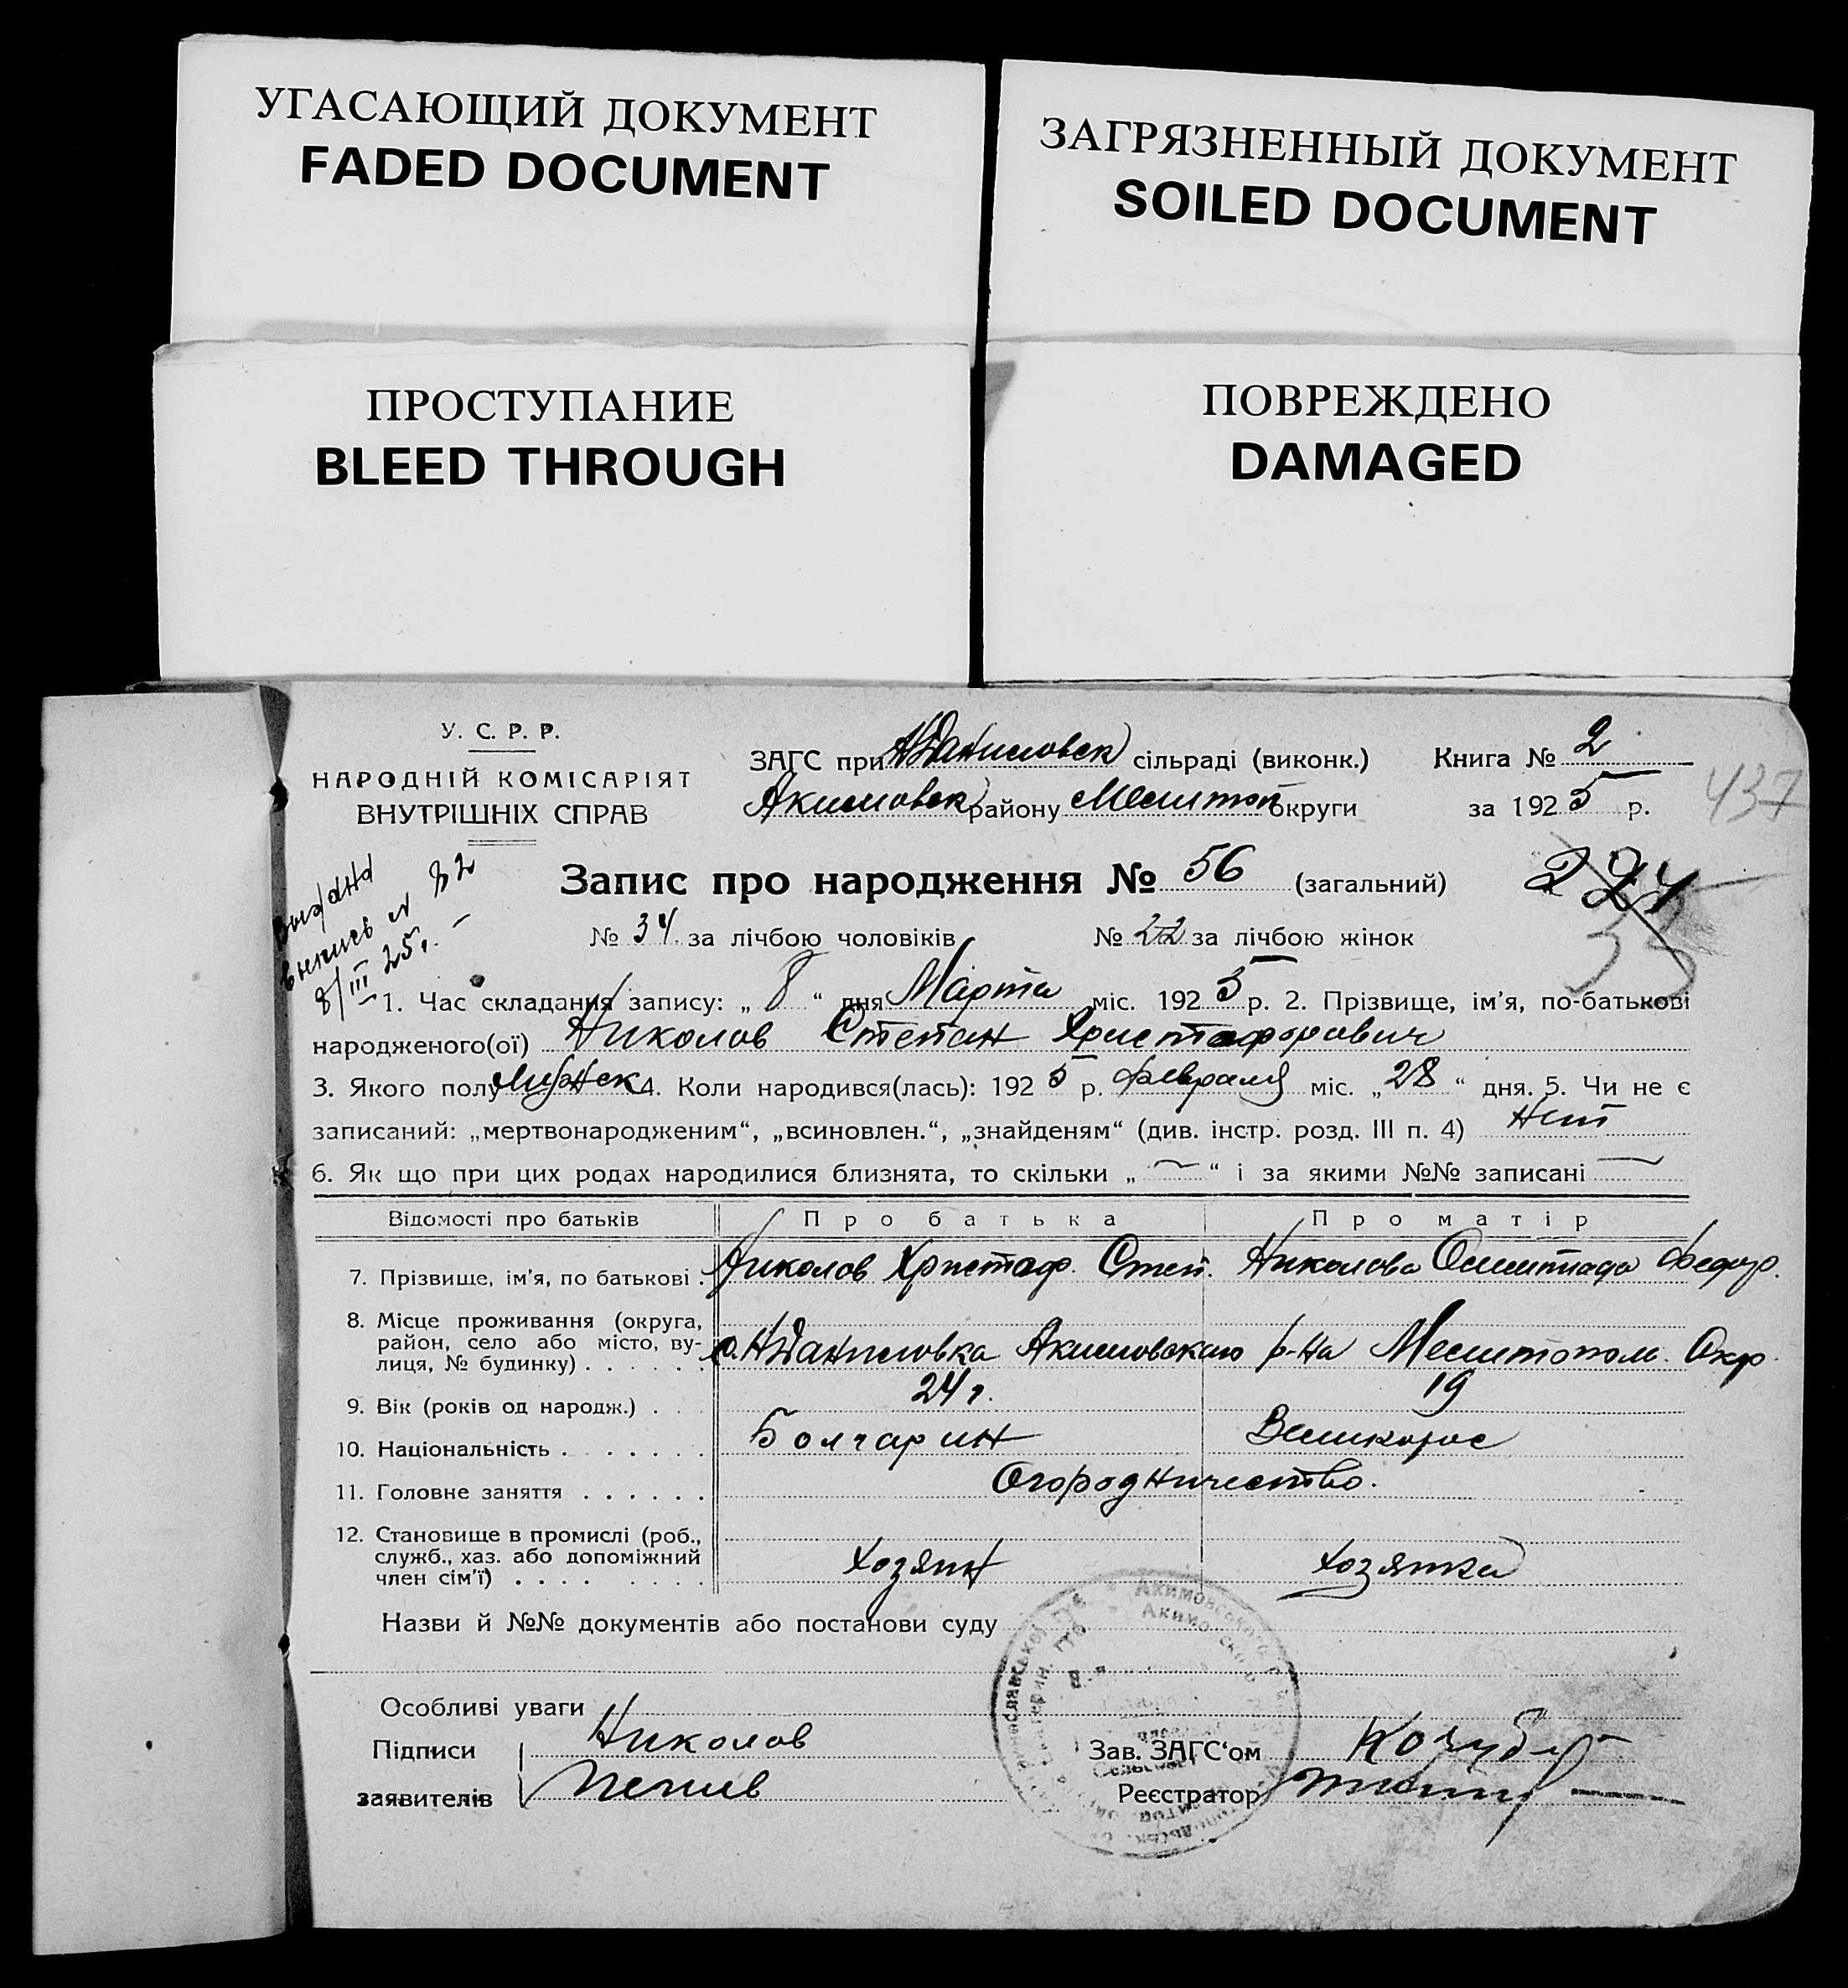 УГАСАЮЩИЙ ДОКУМЕНТ
FADED DOCUMENT
ЗАГРЯЗНЕННЫЙ ДОКУМЕНТ
SOILED DOCUMENT
ПРОСТУПАНИЕ
BLEED THROUGH
ПОВРЕЖДЕНО
DAMAGED
У. С. Р. Р.
НАРОДНІЙ КОМІСАРІЯТ
ВНУТРІШНІХ СПРАВ
ЗАГС при НДаниловск сільраді (виконк.) Книга № 2
Акимовск району Мелитоп округи за 1925 р.
437
Выдана
выпись № 82
8/III 25г.
Запис про народження № 56 (загальний)
224
№ 34 за лічбою чоловіків № 22 за лічбою жінок
1. Час складання запису: „ 8 “ дня Марта міс. 1925 р. 2. Прізвище, ім’я, по-батькові
народженого(ої) Николов Степан Христофорович
3. Якого полу Мужск 4. Коли народився(лась): 1925 р. февраля міс. „ 28 “ дня. 5. Чи не є
записаний: „мертвонародженим“, „всиновлен.“, „знайденям“ (див. інстр. розд. III п. 4) Нет
6. Як що при цих родах народилися близнята, то скільки „ — “ і за якими №№ записані —
Відомості про батьків Про батька Про матір
7. Прізвище, ім’я, по батькові . Николов Христоф. Степ. Николова Олимпиада Федор.
8. Місце проживання (округа,
район, село або місто, ву-
лиця, № будинку) . . . . . с. НДаниловка Акимовского р-на Мелитопол. Окр.
9. Вік (років од народж.) . . . 24 г. 19
10. Національність . . . . . . . Болгарин Великорос
11. Головне заняття . . . . . . Огородничество.
12. Становище в промислі (роб.,
служб., хаз. або допоміжний
член сім’ї) . . . . . . . . Хозяин хозяйка
Назви й №№ документів або постанови суду
Особливі уваги
Підписи Николов Зав. ЗАГС‘ом
заявителів Пенчев Реєстратор